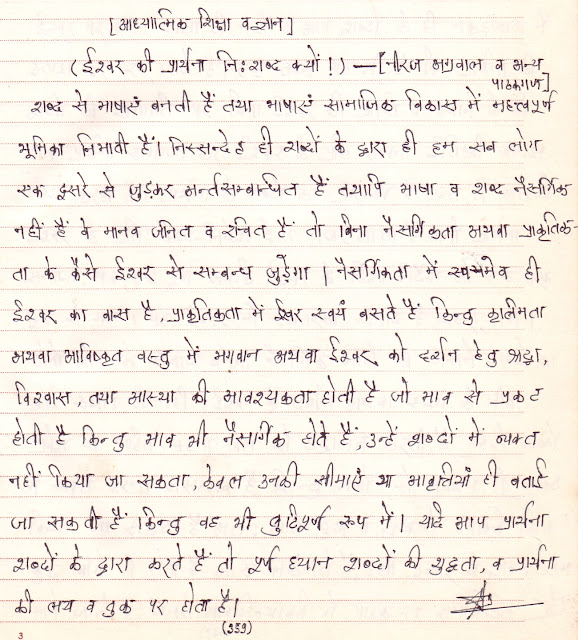 [आध्यात्मिक शिक्षा व ज्ञान]
(ईश्वर की प्रार्थना निःशब्द क्यों!) — [नीरज अग्रवाल व अन्य
पाठकगज]
शब्द से भाषाएं बनती हैं तथा भाषाएं सामाजिक विकास में महत्त्वपूर्ण
भूमिका निभाती हैं। निस्सन्देह ही शब्दों के द्वारा ही हम सब लोग
एक दूसरे से जुड़कर अर्न्तसम्बन्धित हैं तथापि भाषा व शब्द नैसर्गिक
नहीं हैं वे मानव जनित व रचित हैं तो बिना नैसर्गिकता अथवा प्राकृतिक-
ता के कैसे ईश्वर से सम्बन्ध जुड़ेगा। नैसर्गिकता में स्वयमेव ही
ईश्वर का वास है, प्राकृतिकता में ईश्वर स्वयं बसते हैं किन्तु कृत्रिमता
अथवा आविष्कृत वस्तु में भगवान अथवा ईश्वर को दर्शन हेतु श्रद्धा,
विश्वास, तथा आस्था की आवश्यकता होती है जो भाव से प्रकट
होती है किन्तु भाव भी नैसर्गिक होते हैं, उन्हें शब्दों में व्यक्त
नहीं किया जा सकता, केवल उनकी सीमाएं या आवृत्तियां ही बताई
जा सकती हैं किन्तु वह भी त्रुटिपूर्ण रूप में। यदि आप प्रार्थना
शब्दों के द्वारा करते हैं तो पूर्ण ध्यान शब्दों की शुद्धता, व प्रार्थना
की लय व तुक पर होता है।
(359)
3